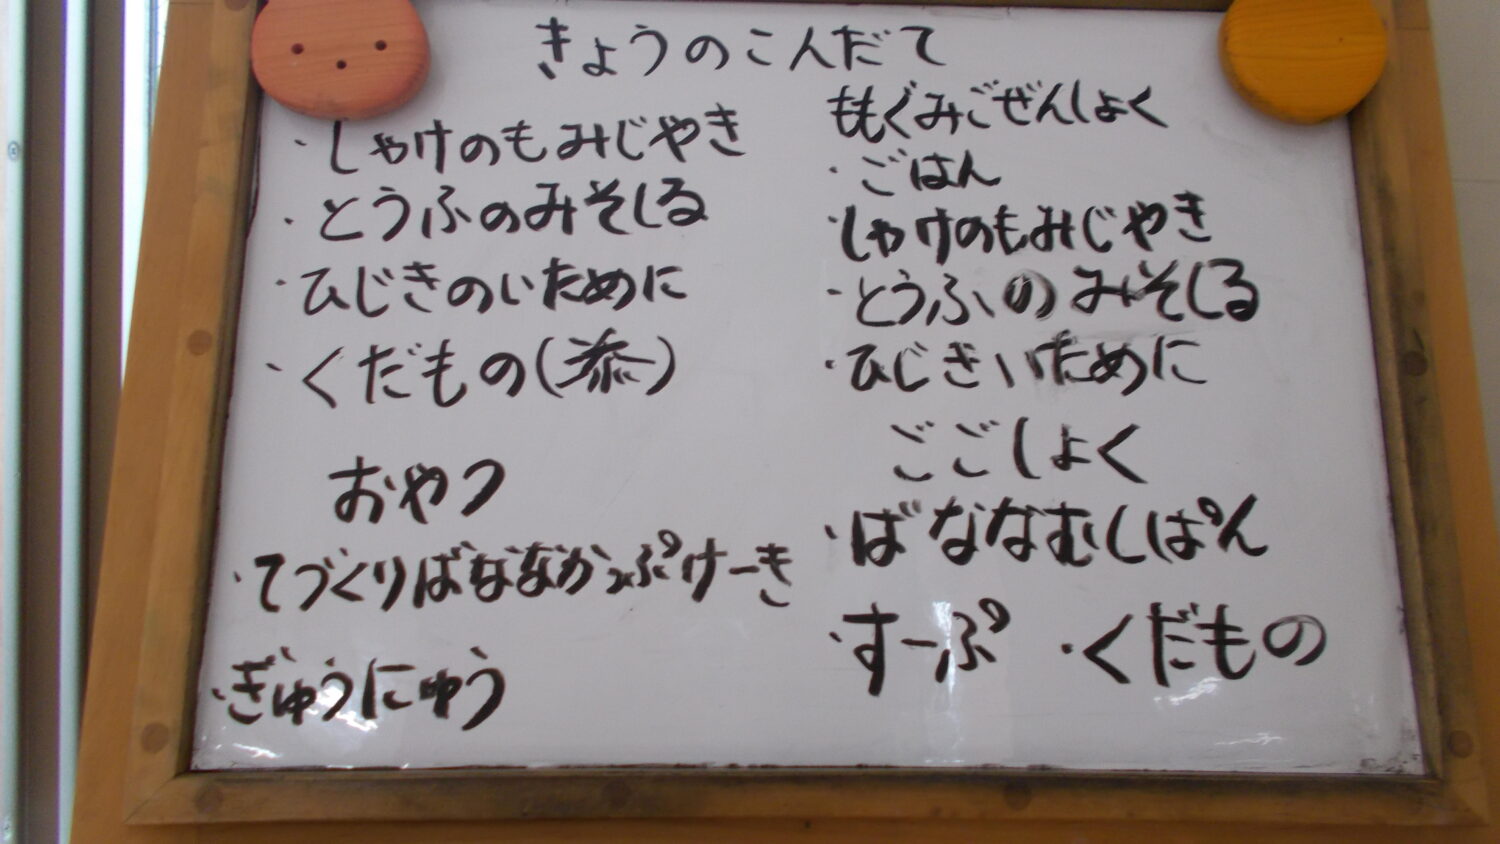 きょうのこんだて
・しゃけのもみじやき
・とうふのみそしる
・ひじきのいために
・くだもの()
おやつ
・てづくりばななかっぷけーき
・ぎゅうにゅう
ももぐみごぜんしょく
・ごはん
・しゃけのもみじやき
・とうふのみそしる
・ひじきいために
ごごしょく
・ばななむしぱん
・すーぷ ・くだもの